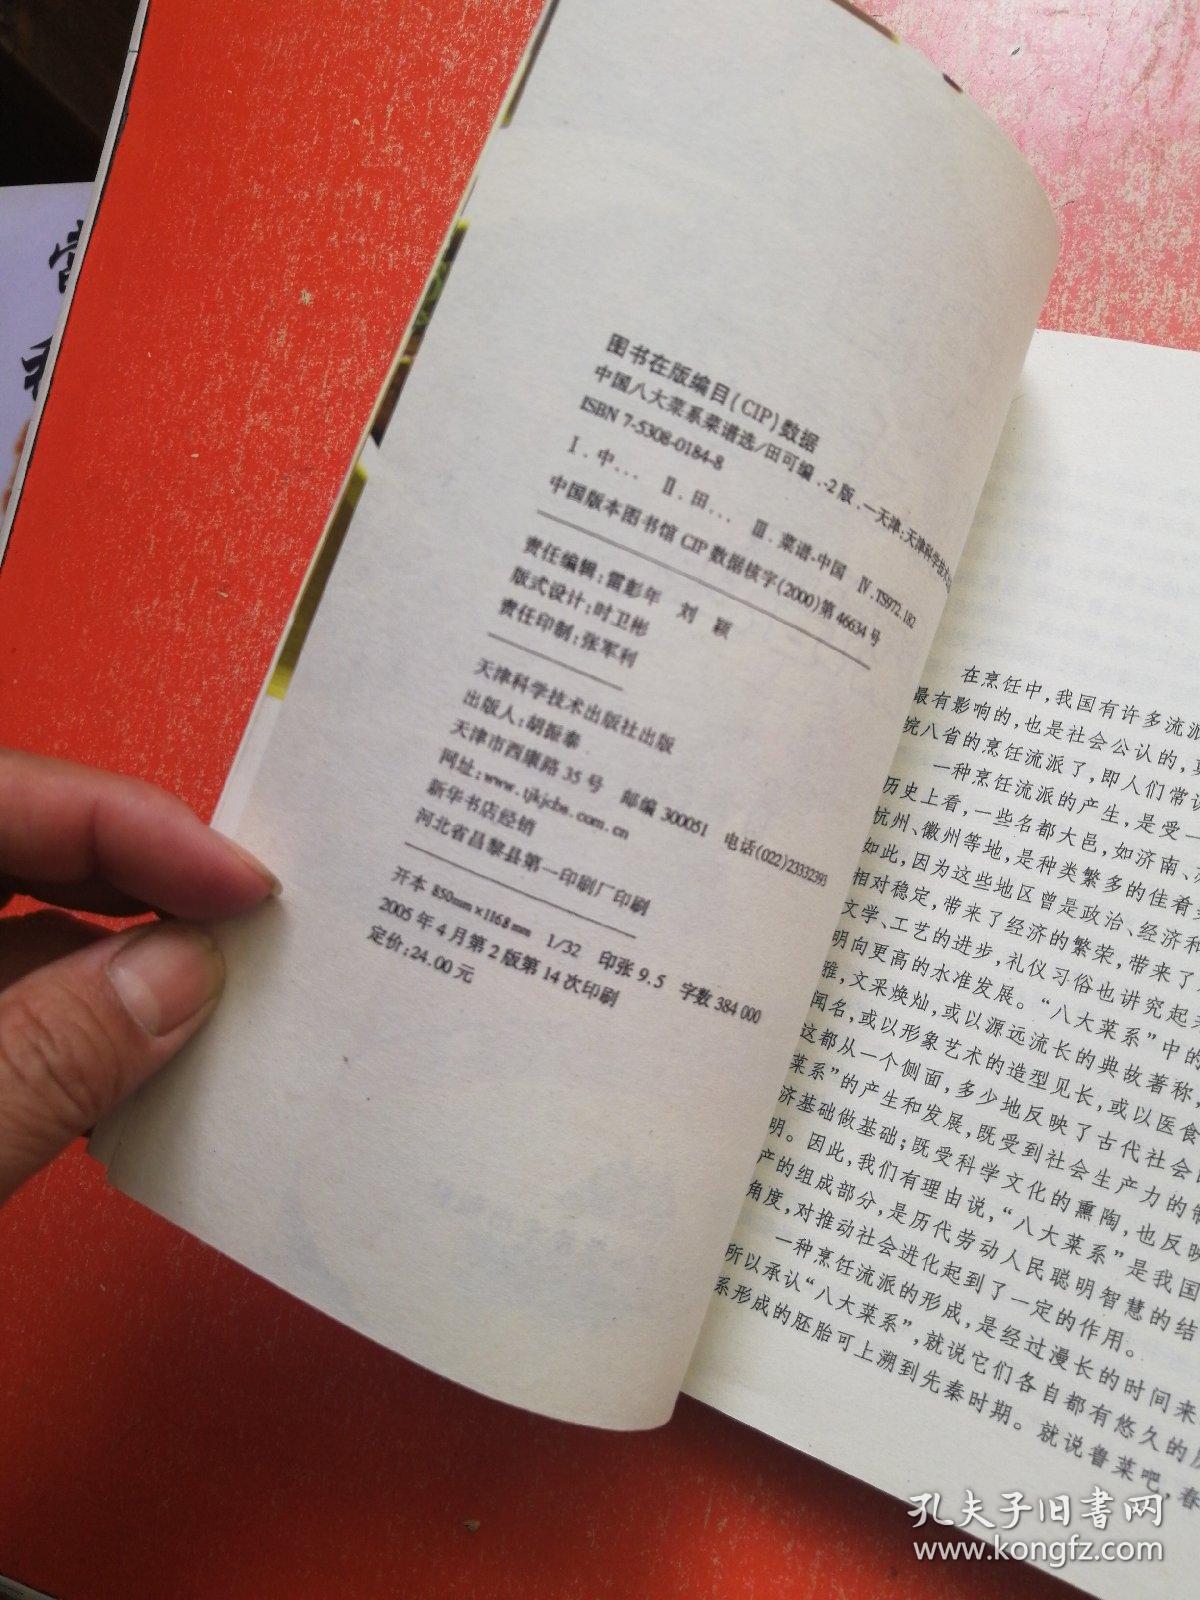 图书在版编目(CIP)数据
中国八大菜系菜谱选/田可编.-2版.—天津:天津科学技术
ISBN 7-5308-0184-8
Ⅰ.中… Ⅱ.田… Ⅲ.菜谱-中国 Ⅳ.TS972.182
中国版本图书馆 CIP 数据核字(2000)第 46634 号
责任编辑:雷彭年 刘 颖
版式设计:时卫彬
责任印制:张军利
天津科学技术出版社出版
出版人:胡振泰
天津市西康路 35 号 邮编 300051 电话(022)23332393
网址:www.tjkjcbs.com.cn
新华书店经销
河北省昌黎县第一印刷厂印刷
开本 850mm×1168mm 1/32 印张 9.5 字数 384 000
2005 年 4 月第 2 版第 14 次印刷
定价:24.00 元
在烹饪中,我国有许多流派
最有影响的,也是社会公认的,
皖八省的烹饪流派了,即人们常
一种烹饪流派的产生,是受一
历史上看,一些名都大邑,如济南、
杭州、徽州等地,是种类繁多的佳肴
如此,因为这些地区曾是政治、经济和
相对稳定,带来了经济的繁荣,带来了
文学、工艺的进步,礼仪习俗也讲究起
明向更高的水准发展。“八大菜系”中的
雅,文采焕灿,或以源远流长的典故著称,
闻名,或以形象艺术的造型见长,或以医食
这都从一个侧面,多少地反映了古代社会
菜系”的产生和发展,既受到社会生产力的
济基础做基础;既受科学文化的熏陶,也反映
明。因此,我们有理由说,“八大菜系”是我国
产的组成部分,是历代劳动人民聪明智慧的结
角度,对推动社会进化起到了一定的作用。
一种烹饪流派的形成,是经过漫长的时间来
所以承认“八大菜系”,就说它们各自都有悠久的
系形成的胚胎可上溯到先秦时期。就说鲁菜吧,春
孔夫子旧书网
www.kongfz.com